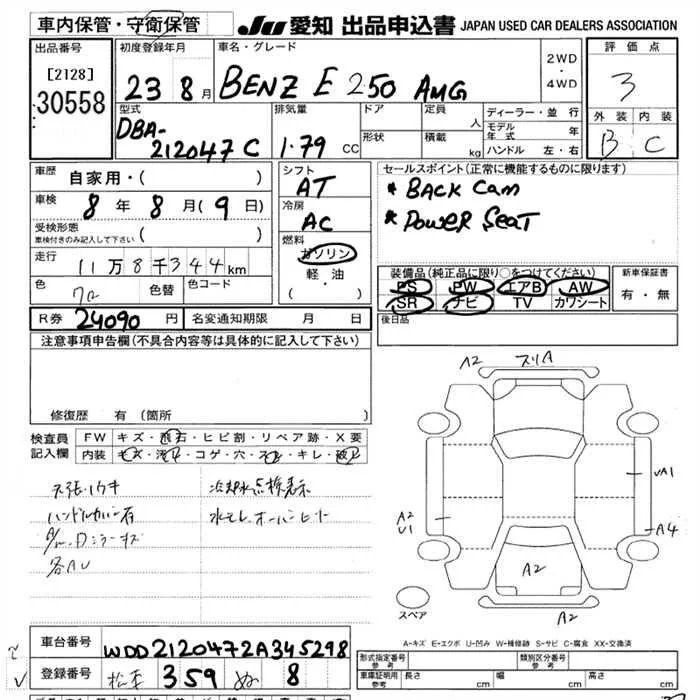 車内保管・守衛保管
JU 愛知 出品申込書 JAPAN USED CAR DEALERS ASSOCIATION
出品番号
[2128]
30558
初度登録年月
23 8月
車名・グレード
BENZ E 250 AMG
2WD
・
4WD
評価点
3
外装 内装
B C
型式
DBA-
212047C
排気量
1.79 CC
ドア
形状
定員 人
積載 kg
ディーラー・並行
モデル年式 年
ハンドル 左・右
車歴
自家用・( )
車検
8年8月(9日)
受検形態
車検付きのみ記入して下さい ( )
走行
11万8千344km
色 色替 色コード
R券 24090円 名変通知期限 月 日
シフト
AT
冷房
AC
燃料
ガソリン
軽・油
(・)
セールスポイント(正常に機能するものに限ります)
* BACK Cam
* POWER SEAT
装備品(純正品に限り○をつけてください)
PS PW エアB AW
SR ナビ TV カワシート
新車保証書
有・無
後日品
注意事項申告欄(不具合内容等は具体的に記入して下さい)
修復歴 有(箇所 )
検査員
記入欄
FW キズ・飛石・ヒビ割・リペア跡・X要
内装 キズ・汚れ・コゲ・穴・スレ・キレ・破れ
天張ノウキ
ハンドルカバー有
冷却水点検表示
水モレ、オーバーヒート
各AU
A2 スリA
VA1
A2
U1
A4
A2
A2
スペア
A-キズ E-エクボ U-凹み W-補修跡 S-サビ C-腐食 XX-交換済
車台番号
WDD2120472A345298
登録番号
松本 359 ぬ 8
形式指定番号
参考
類別区分番号
参考
車庫証明用
参考
長さ cm 幅 cm 高さ cm